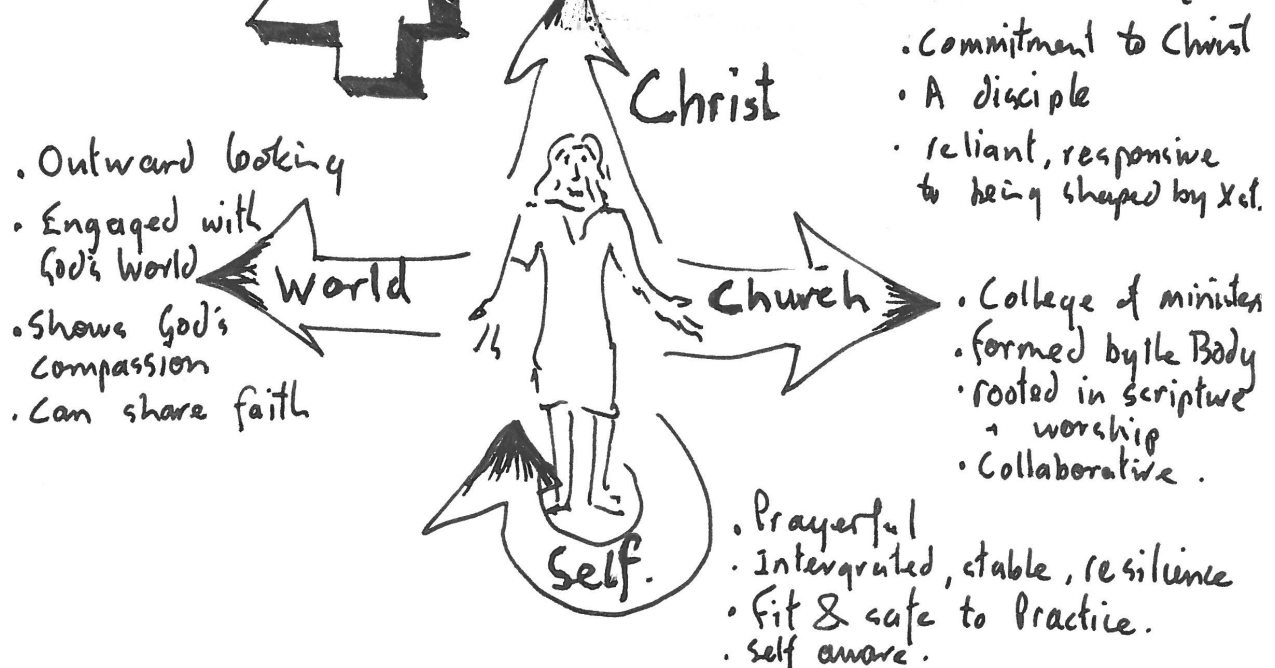 Christ
. Commitment to Christ
. A disciple
. reliant, responsive
to being shaped by Xst.
. Outward looking
. Engaged with
God's World
. Shows God's
compassion
. Can share faith
World
Church
. College of ministers
. formed by the Body
. rooted in scripture
+ worship
. Collaborative.
Self.
. Prayerful
. Intergrated, stable, resilience
. Fit & safe to Practice.
. Self aware.